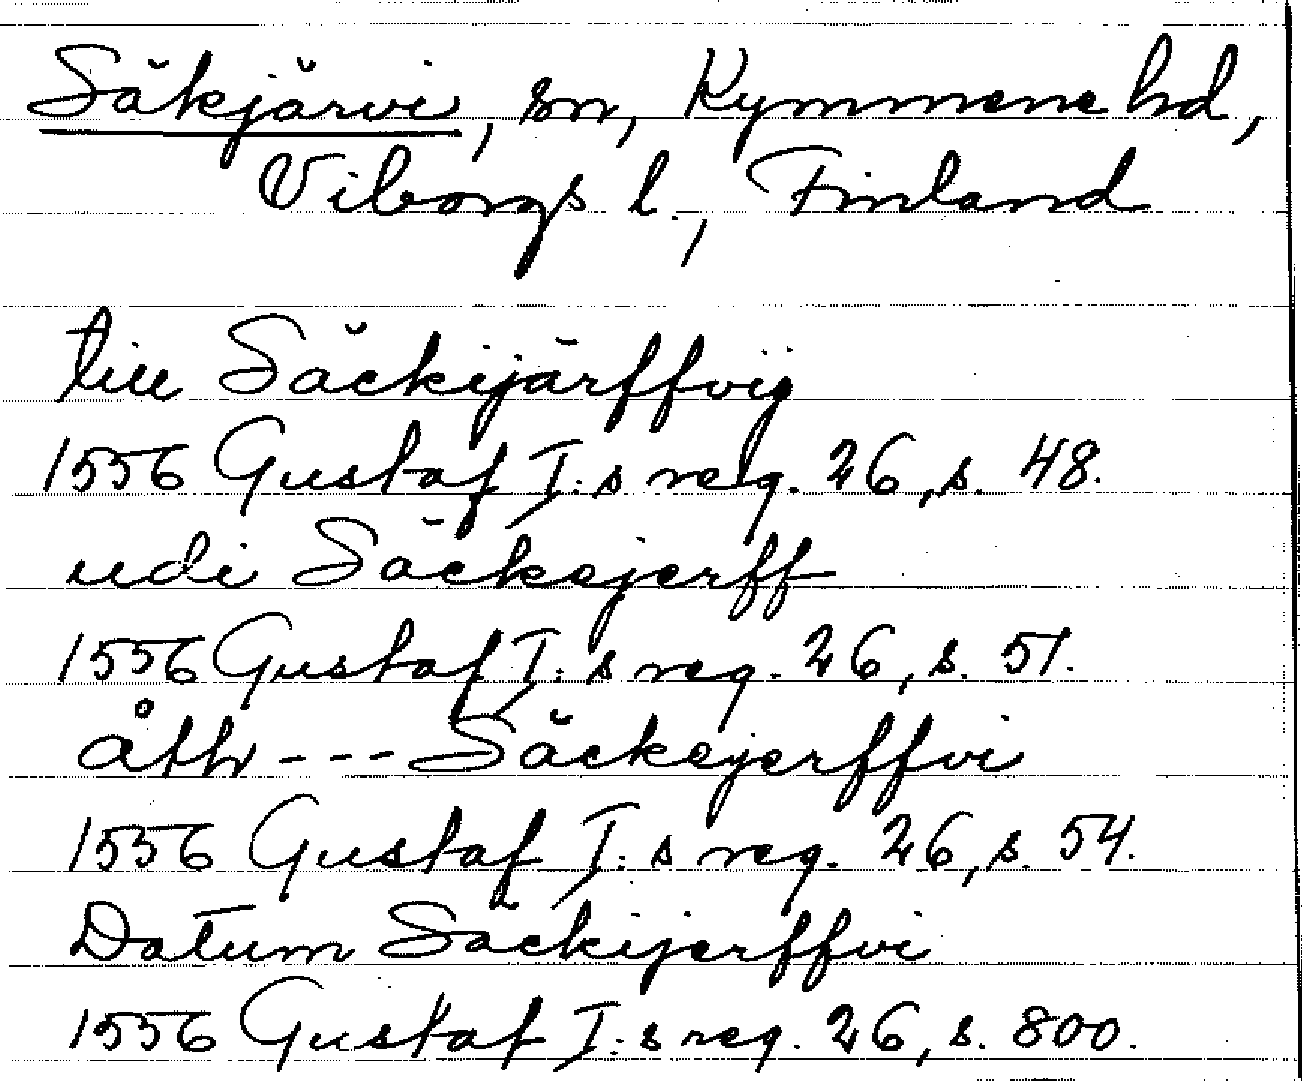 Säkjärvi, sn, Kymmene hd,
Viborgs l., Finland
till Säckijärffvig
1556 Gustaf I:s reg. 26, s. 48.
udi Säckejerff
1556 Gustaf I:s reg. 26, s. 51.
åth --- Säckejerffvi
1556 Gustaf I:s reg. 26, s. 54.
Datum Säckijerffvi
1556 Gustaf I:s reg. 26, s. 800.